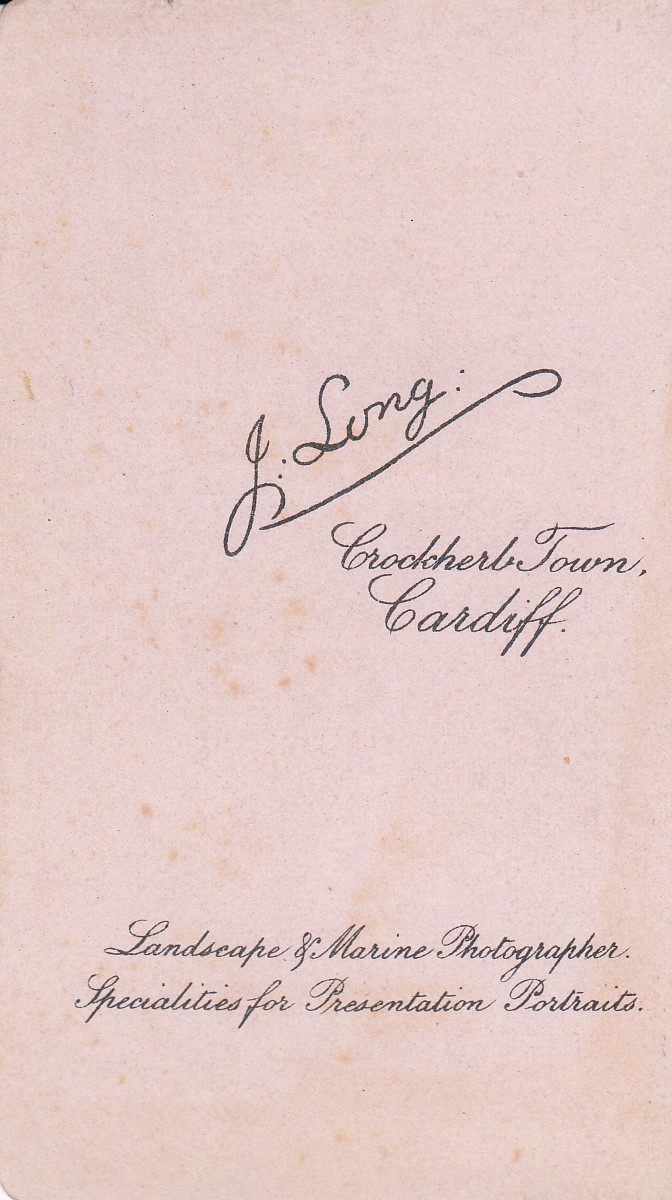 J. Long.
Crockherb Town,
Cardiff.
Landscape & Marine Photographer.
Specialities for Presentation Portraits.